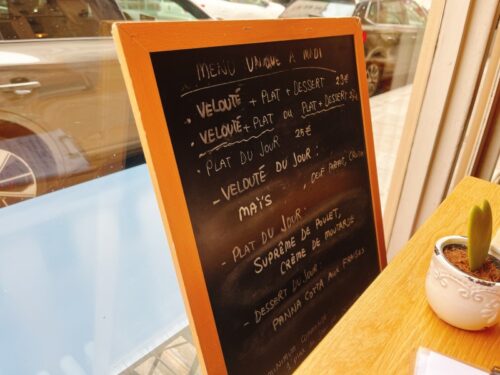 MENU UNIQUE A MIDI
• VELOUTÉ + PLAT + DESSERT 29€
• VELOUTÉ + PLAT OU PLAT + DESSERT
• PLAT DU JOUR 25€
- VELOUTÉ DU JOUR :
MAÏS, OEUF PARFAIT,
- PLAT DU JOUR :
SUPRÊME DE POULET,
CRÈME DE MOUTARDE
- DESSERT DU JOUR :
PANNA COTTA AUX FRAISES
MINIMUM